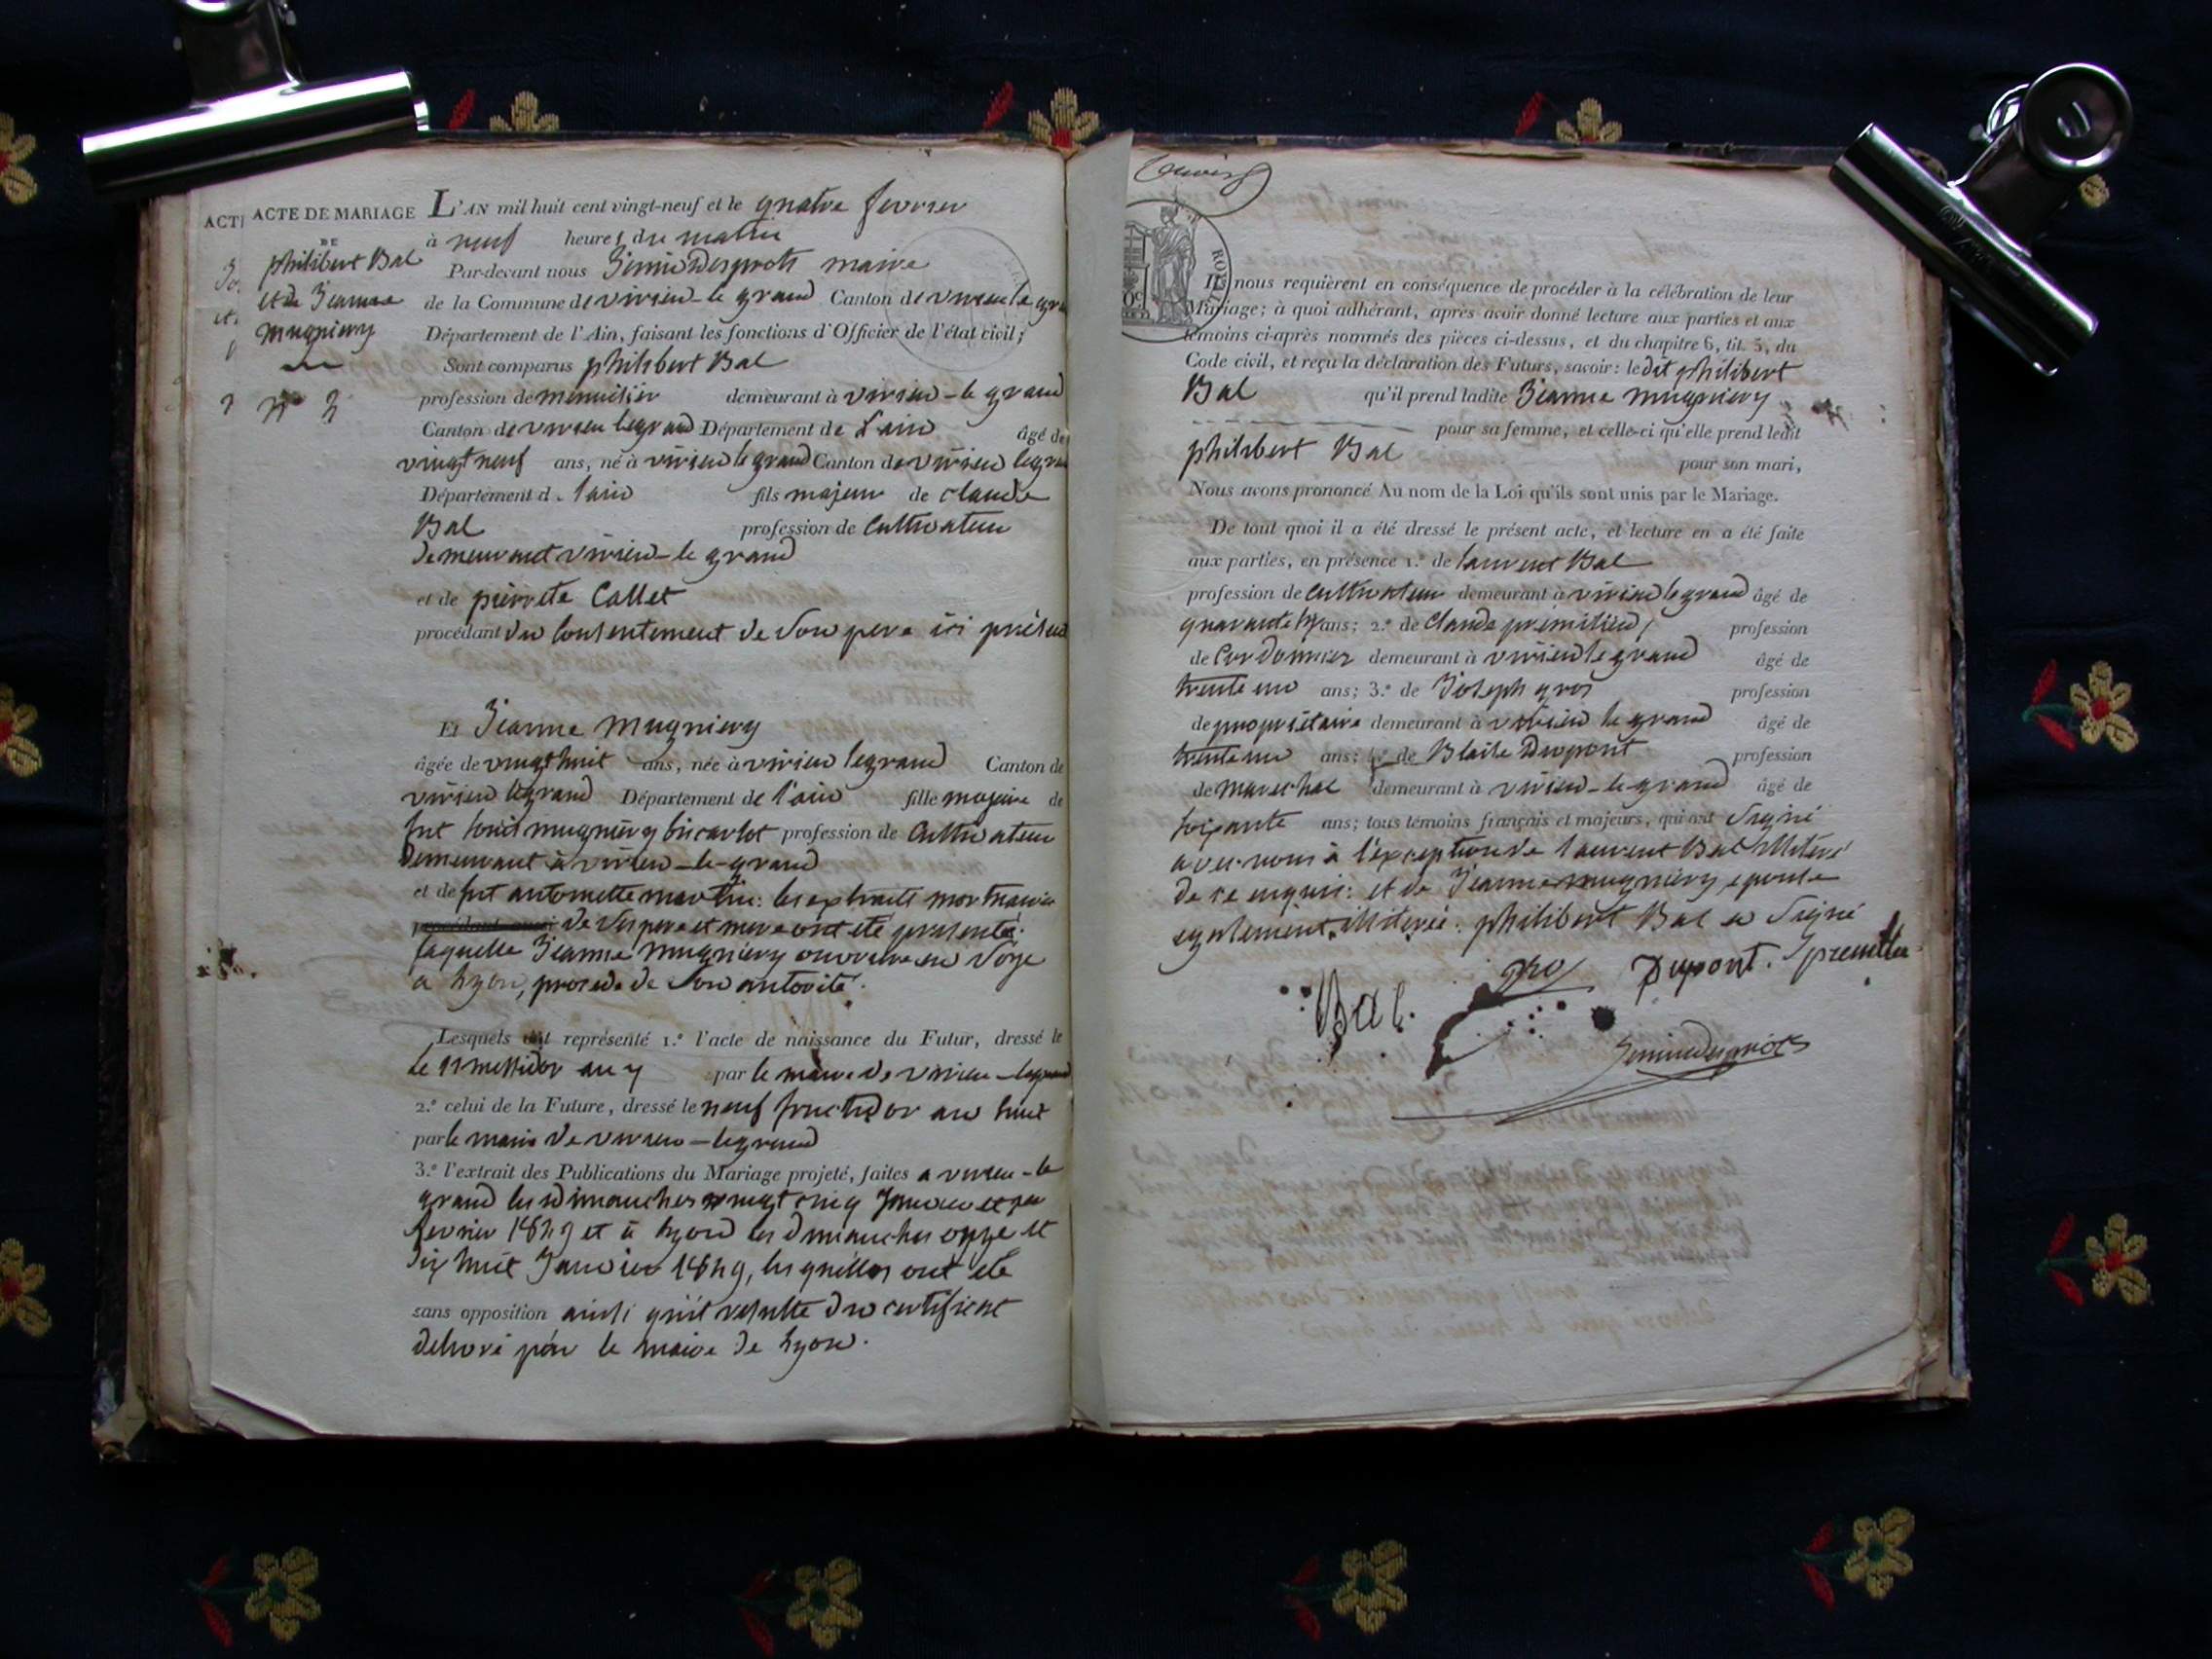 ACTE DE MARIAGE
DE
philibert Bal
et de Jeanne
mugniery
n° 3
L'AN mil huit cent vingt-neuf et le quatre fevrier
à neuf heures du matin
Par-devant nous maire
de la Commune de virieu-le grand Canton de virieu le gra
Département de l'Ain, faisant les fonctions d'Officier de l'état civil;
Sont comparus philibert Bal
profession de menuisier demeurant à virieu-le grand
Canton de virieu legrand Département de L'ain âgé de
vingt neuf ans, né à virieu le grand Canton de virieu legra
Département d. l'ain fils majeur de claude
Bal profession de Cultivateur
demeurant virieu-le grand
et de pierrete Collet
procédant du consentement de son pere ici présent
Et Jeanne mugniery
âgée de vingt huit ans, née à virieu legrand Canton de
virieu legrand Département de l'ain fille majeure de
fut mugniery profession de Cultivateur
demeurant à virieu-le-grand
et de fut antoinette martin: les extraits mortuaires
de ses pere et mere ont été presenté:
laquelle Jeanne mugniery ouvriere en soye
a Lyon, procede de son autorité.
Lesquels ont représenté 1.° l'acte de naissance du Futur, dressé le
le 11 messidor an 7 par le maire de virieu-legrand
2.° celui de la Future, dressé le neuf fructidor an huit
par le maire de virieu-legrand
3.° l'extrait des Publications du Mariage projeté, faites a virieu-le
grand les dimanches vingt cinq Janvier et pr
fevrier 1829 et à Lyon les dimanches onze et
dix huit Janvier 1829, lesquelles ont été
sans opposition ainsi qu'il resulte du certificat
delivré par le maire de Lyon.
Ils nous requièrent en conséquence de procéder à la célébration de leur
Mariage; à quoi adhérant, après avoir donné lecture aux parties et aux
témoins ci-après nommés des pièces ci-dessus, et du chapitre 6, tit. 5, du
Code civil, et reçu la déclaration des Futurs, savoir: le dit philibert
Bal qu'il prend ladite Jeanne mugniery
pour sa femme, et celle-ci qu'elle prend ledit
philibert Bal pour son mari,
Nous avons prononcé Au nom de la Loi qu'ils sont unis par le Mariage.
De tout quoi il a été dressé le présent acte, et lecture en a été faite
aux parties, en présence 1.° de laurent Bal
profession de Cultivateur demeurant à virieu le grand âgé de
quarante ans; 2.° de Claude profession
de Cordonnier demeurant à virieu le grand âgé de
trente un ans; 3.° de Joseph gros profession
de propriétaire demeurant à virieu le grand âgé de
trente un ans; 4.° de Blaise Dupont profession
de marechal demeurant à virieu-le-grand âgé de
soixante ans; tous témoins français et majeurs, qui ont signé
avec nous à l'exception de laurent Bal illiteré
de ce enquis: et de Jeanne mugniery epouse
egalement illiterée. philibert Bal a signé
Bal. gro Dupont.